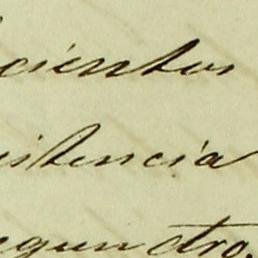 cientos
istencia
egun otro.